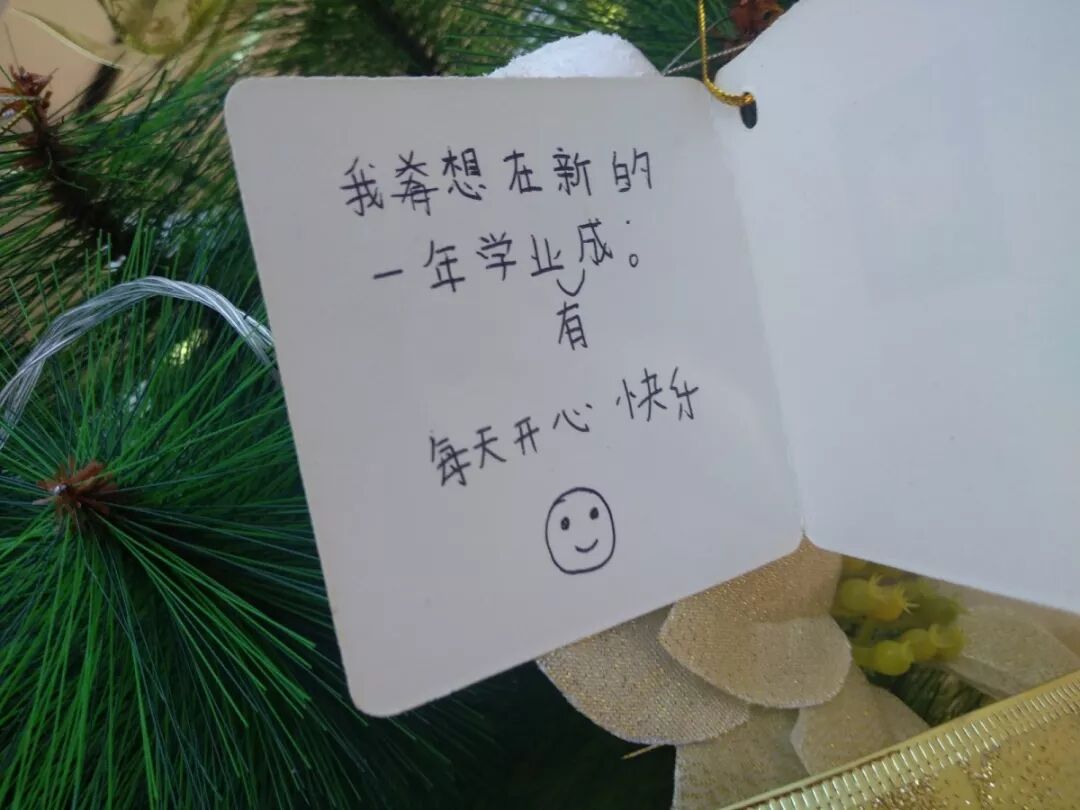 我希想在新的
一年学业有成。
每天开心 快乐